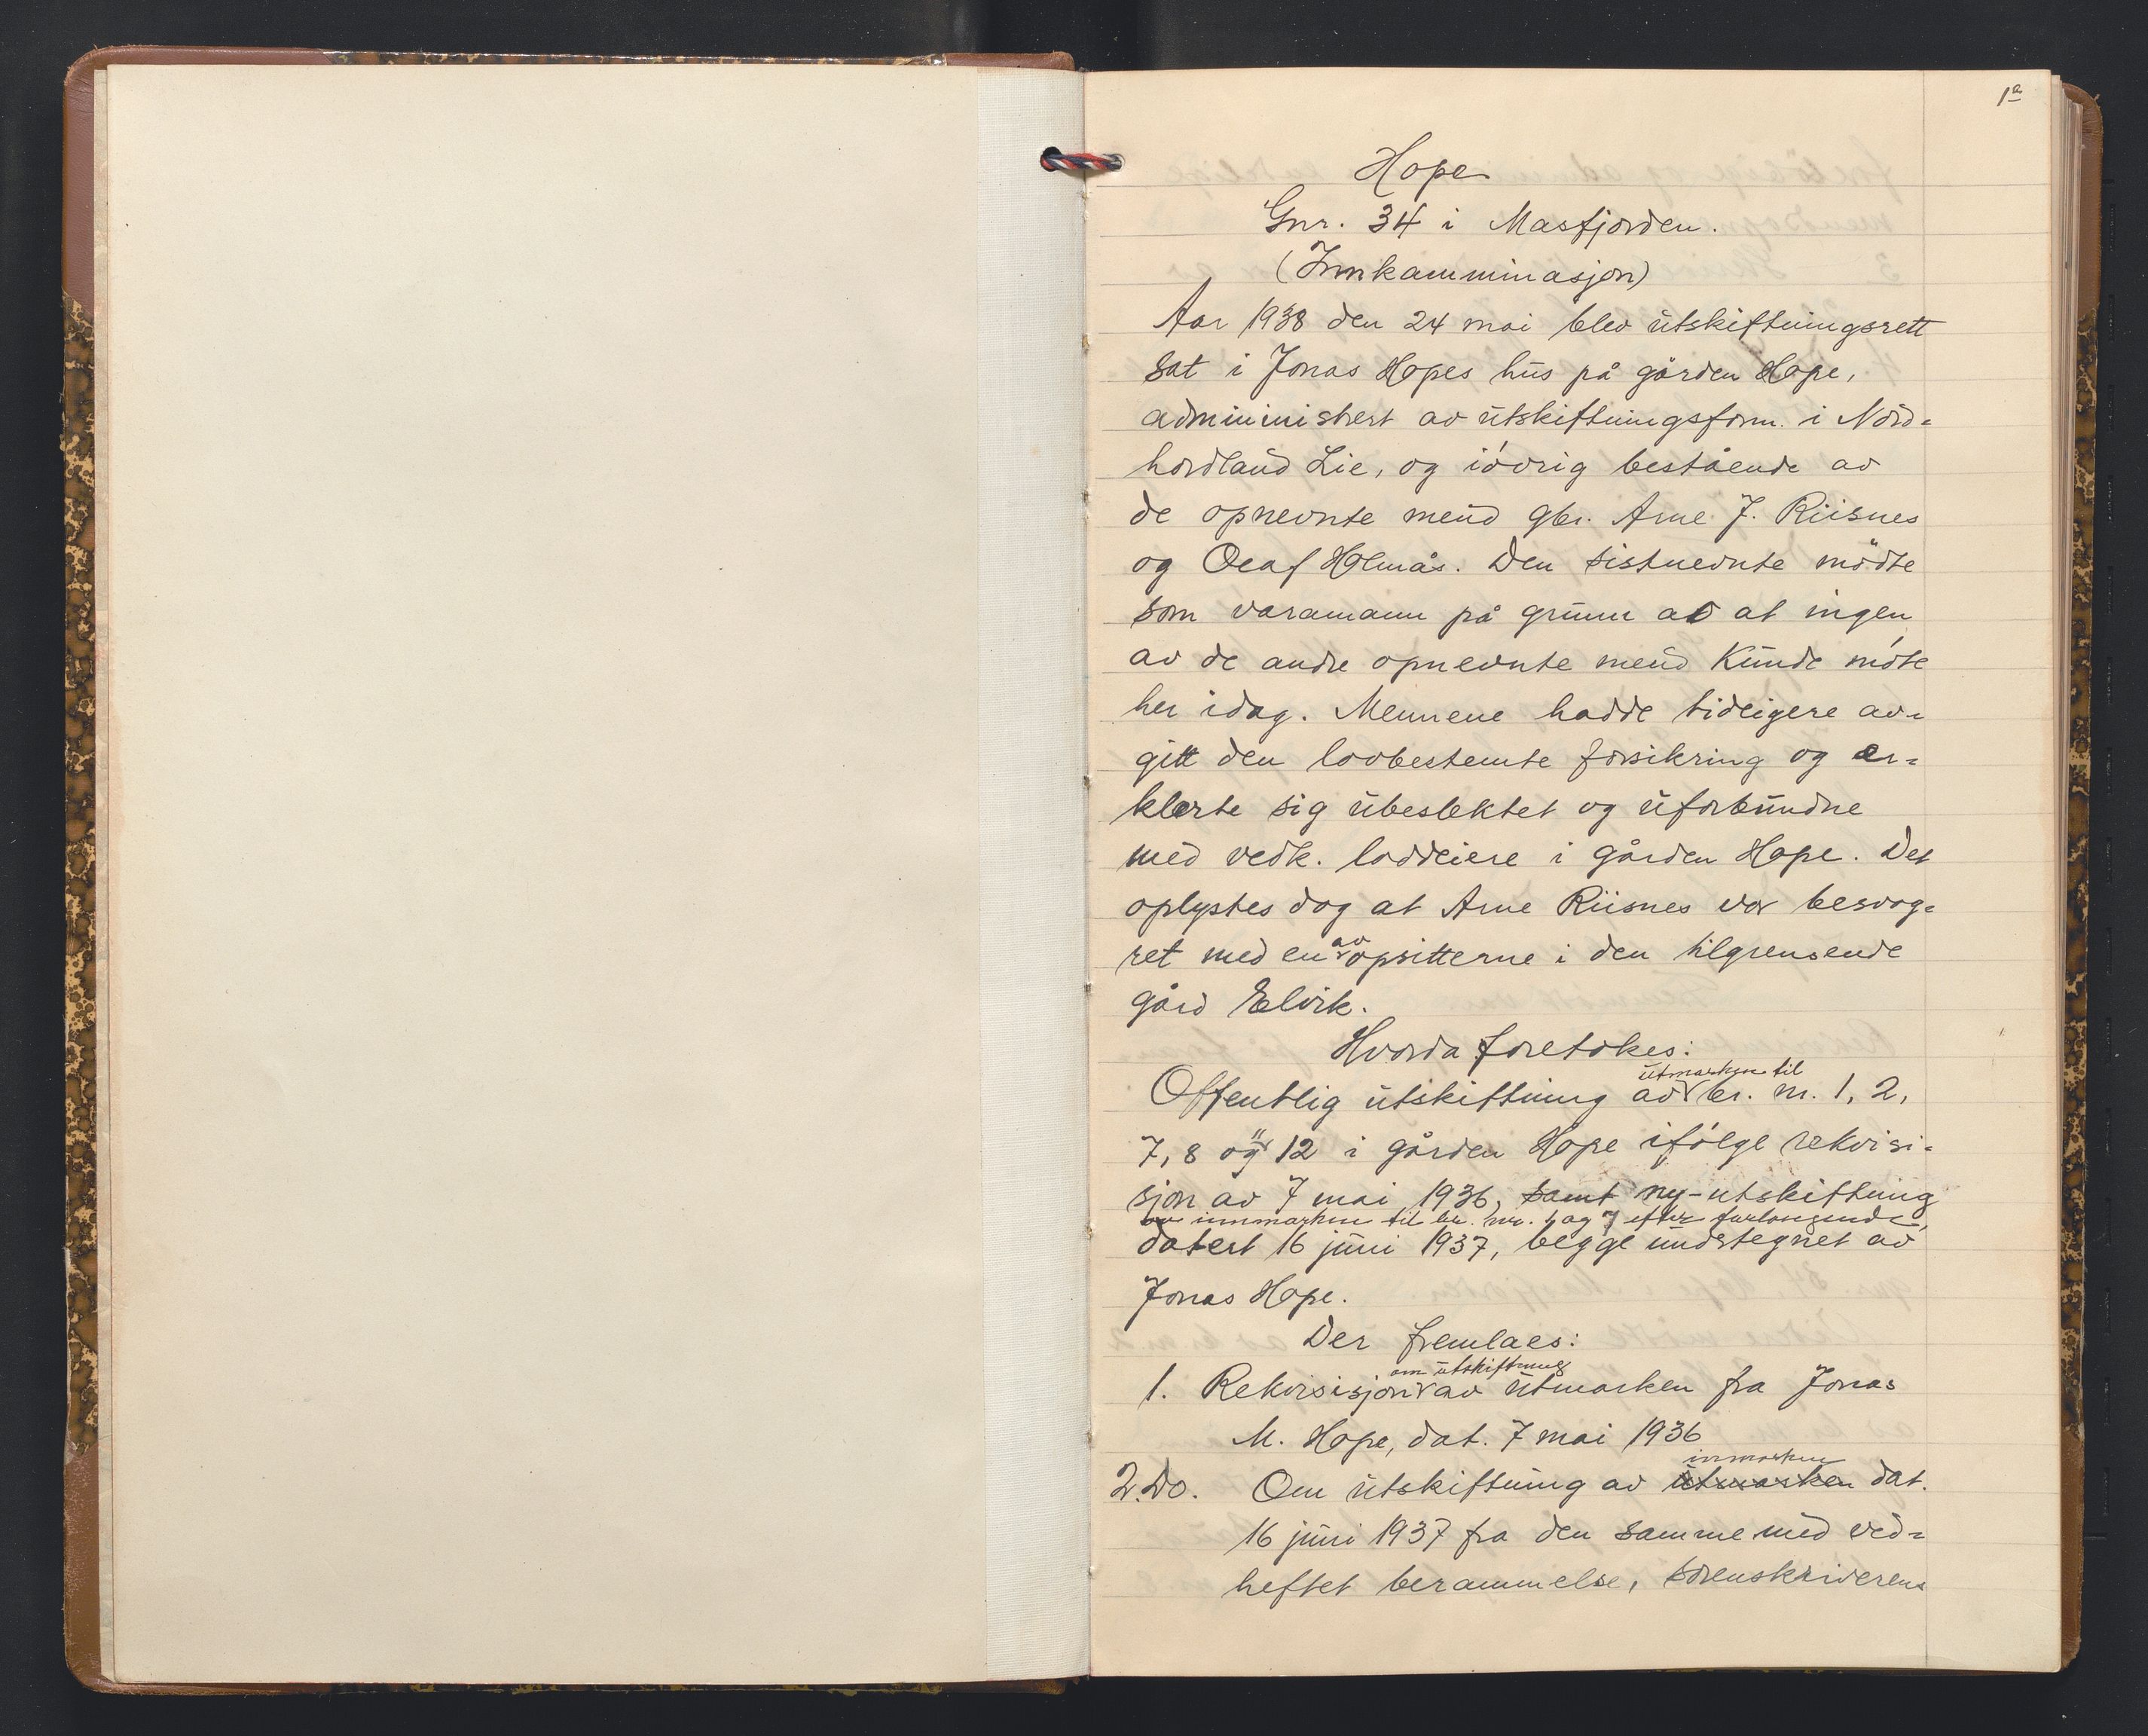 1a
Hope
Gnr. 34 i Masfjorden.
(Innkamminasjon)
Aar 1938 den 24 mai blev utskiftningsrett
sat i Jonas Hopes hus på gården Hope,
administrert av utskiftningsform. i Nord-
hordland Lie, og iøvrig bestående av
de opnevnte menn gbr. Arne J. Riisnes
og Olaf Holmås. Den sistnevnte mødte
som varamann på grunn av at ingen
av de andre opnevnte menn kunde møte
her idag. Mennene hadde tidligere av-
gitt den lovbestemte forsikring og er-
klærte sig ubeslektet og uforbundne
med vedk. loddeiere i gården Hope. Det
oplystes dog at Arne Riisnes var besvog-
ret med en av opsitterne i den tilgrensende
gård Elvik.
Hvorda foretokes:
Offentlig utskiftning av utmarken til br. nr. 1, 2,
7, 8 og 11 12 i gården Hope ifølge rekvisi-
sjon av 7 mai 1936, samt ny-utskiftning
av innmarken til br. nr. 1 og 7 efter forlangende,
datert 16 juni 1937, begge undertegnet av
Jonas Hope.
Der fremlaes:
1. Rekvisisjon om utskiftning av utmarken fra Jonas
M. Hope, dat. 7 mai 1936
2. Do. Om utskiftning av utmarken innmarken dat.
16 juni 1937 fra den samme med ved-
heftet berammelse, sorenskriverens